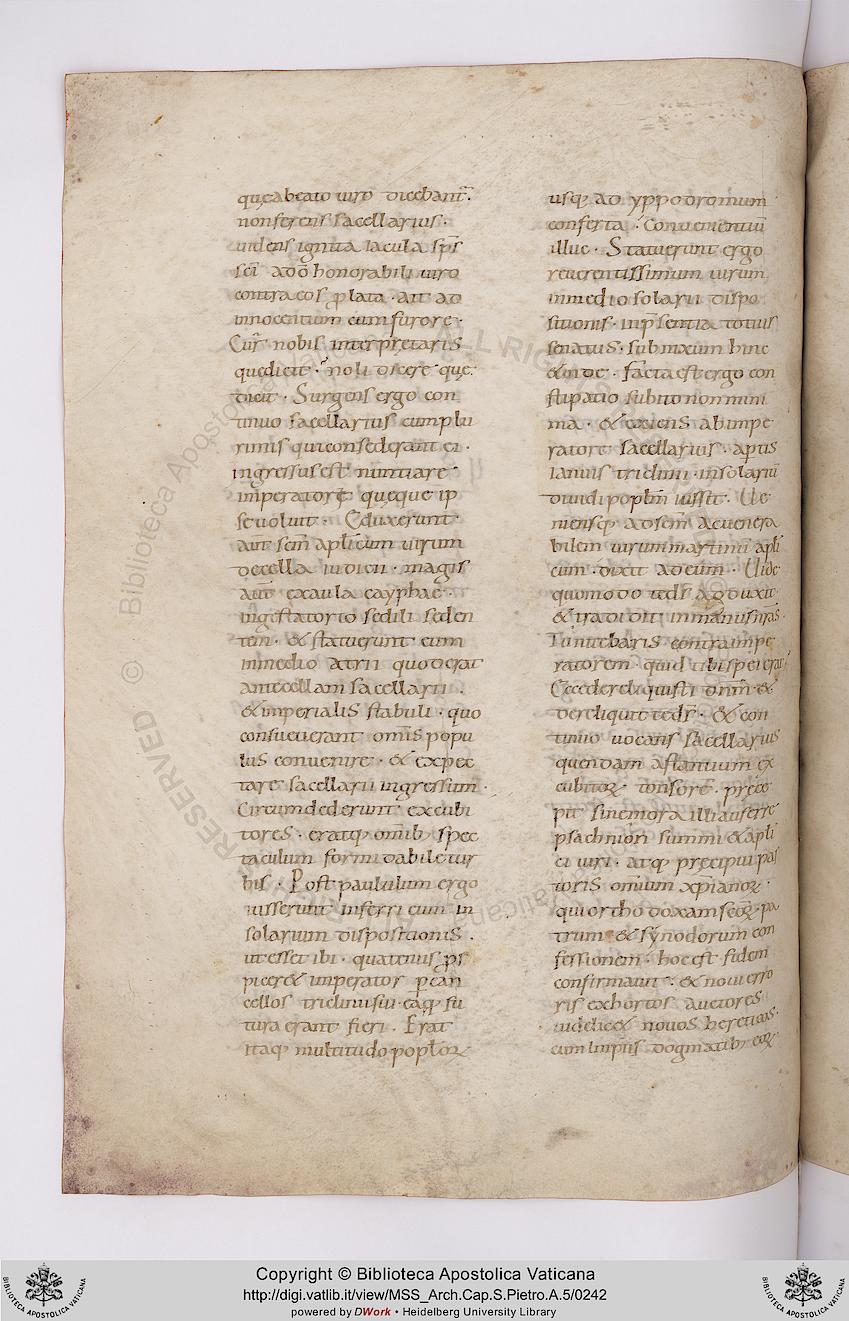 quę a beato uiro dicebant̃.
non ferens sacellarius.
uidens ignita iacula sp̃s
sc̃i ad õ honorabili uiro
contra eos ꝓlata. ait ad
innocentium cum furore.
Cur̃ nobis interpretaris
que dicit. noli dicere quę
dicit. Surgens ergo con
tinuo sacellarius cum plu
rimis qui consederant ei.
ingressus est nuntiare
imperatorę quęque ip
se uoluit. Eduxerunt
aut̃ scm̃ aplicum uirum
de cella iudicii. magis
aut̃ ex aula cayphae.
in gestatorio sedili seden
tem. & statuerunt eum
in medio atrii quod erat
ante cellam sacellarii.
& imperialis stabuli. quo
consueuerant omñis popu
lus conuenire. & expec
tare sacellarii ingressum.
Circumdederunt excubi
tores. eratq; omñib; spec
taculum formidabile tur
bis. Post paululum ergo
iusserunt inferri eum in
solarium dispositionis.
ut esset ibi. quatenus ꝓs
picer& imperator per can
cellos triclinii sui. eaq; fu
tura erant fieri. Erat
itaq; multitudo poploꝝ
usq; ad yppodromum
conferta. Conuenientiũ
illuc. Statuerunt ergo
reuerentissimum uirum
in medio solarii dispo
sitionis. in p̃sentia totius
senatus. submixum hinc
& inde. facta est ergo con
stipatio subito non mini
ma. & exiens ab impe
ratore sacellarius. aptis
ianuis triclinii. in solariũ
diuidi poplm̃ iussit. Ue
niensq; ad scm̃ ac uenera
bilem uirum martinũ apli
cum. dixit ad eum. Uide
quomodo te ds̃ adduxit
& tradidit in manus nr̃as.
Tu nitebaris contra impe
ratorem. quid tibi spei erat
Ecce dereliquisti dnm̃. &
dereliquit te ds̃. & con
tinuo uocans sacellarius
quendam astantium ex
cubitoꝝ tonsorẽ. prece
pit sine mora illi auferre
psachnion summi & apli
ci uiri. atq; pręcipui pas
toris omnium xp̃ianoꝝ.
qui orthodoxam scõꝝ pa
trum & synodorum con
fessionem. hoc est fidem
confirmauit. & noui erro
ris exhortos auctores
iudic& nouos hereticos.
cum impiis dogmatib; eoꝝ
Copyright © Biblioteca Apostolica Vaticana
http://digi.vatlib.it/view/MSS_Arch.Cap.S.Pietro.A.5/0242
powered by DWork • Heidelberg University Library